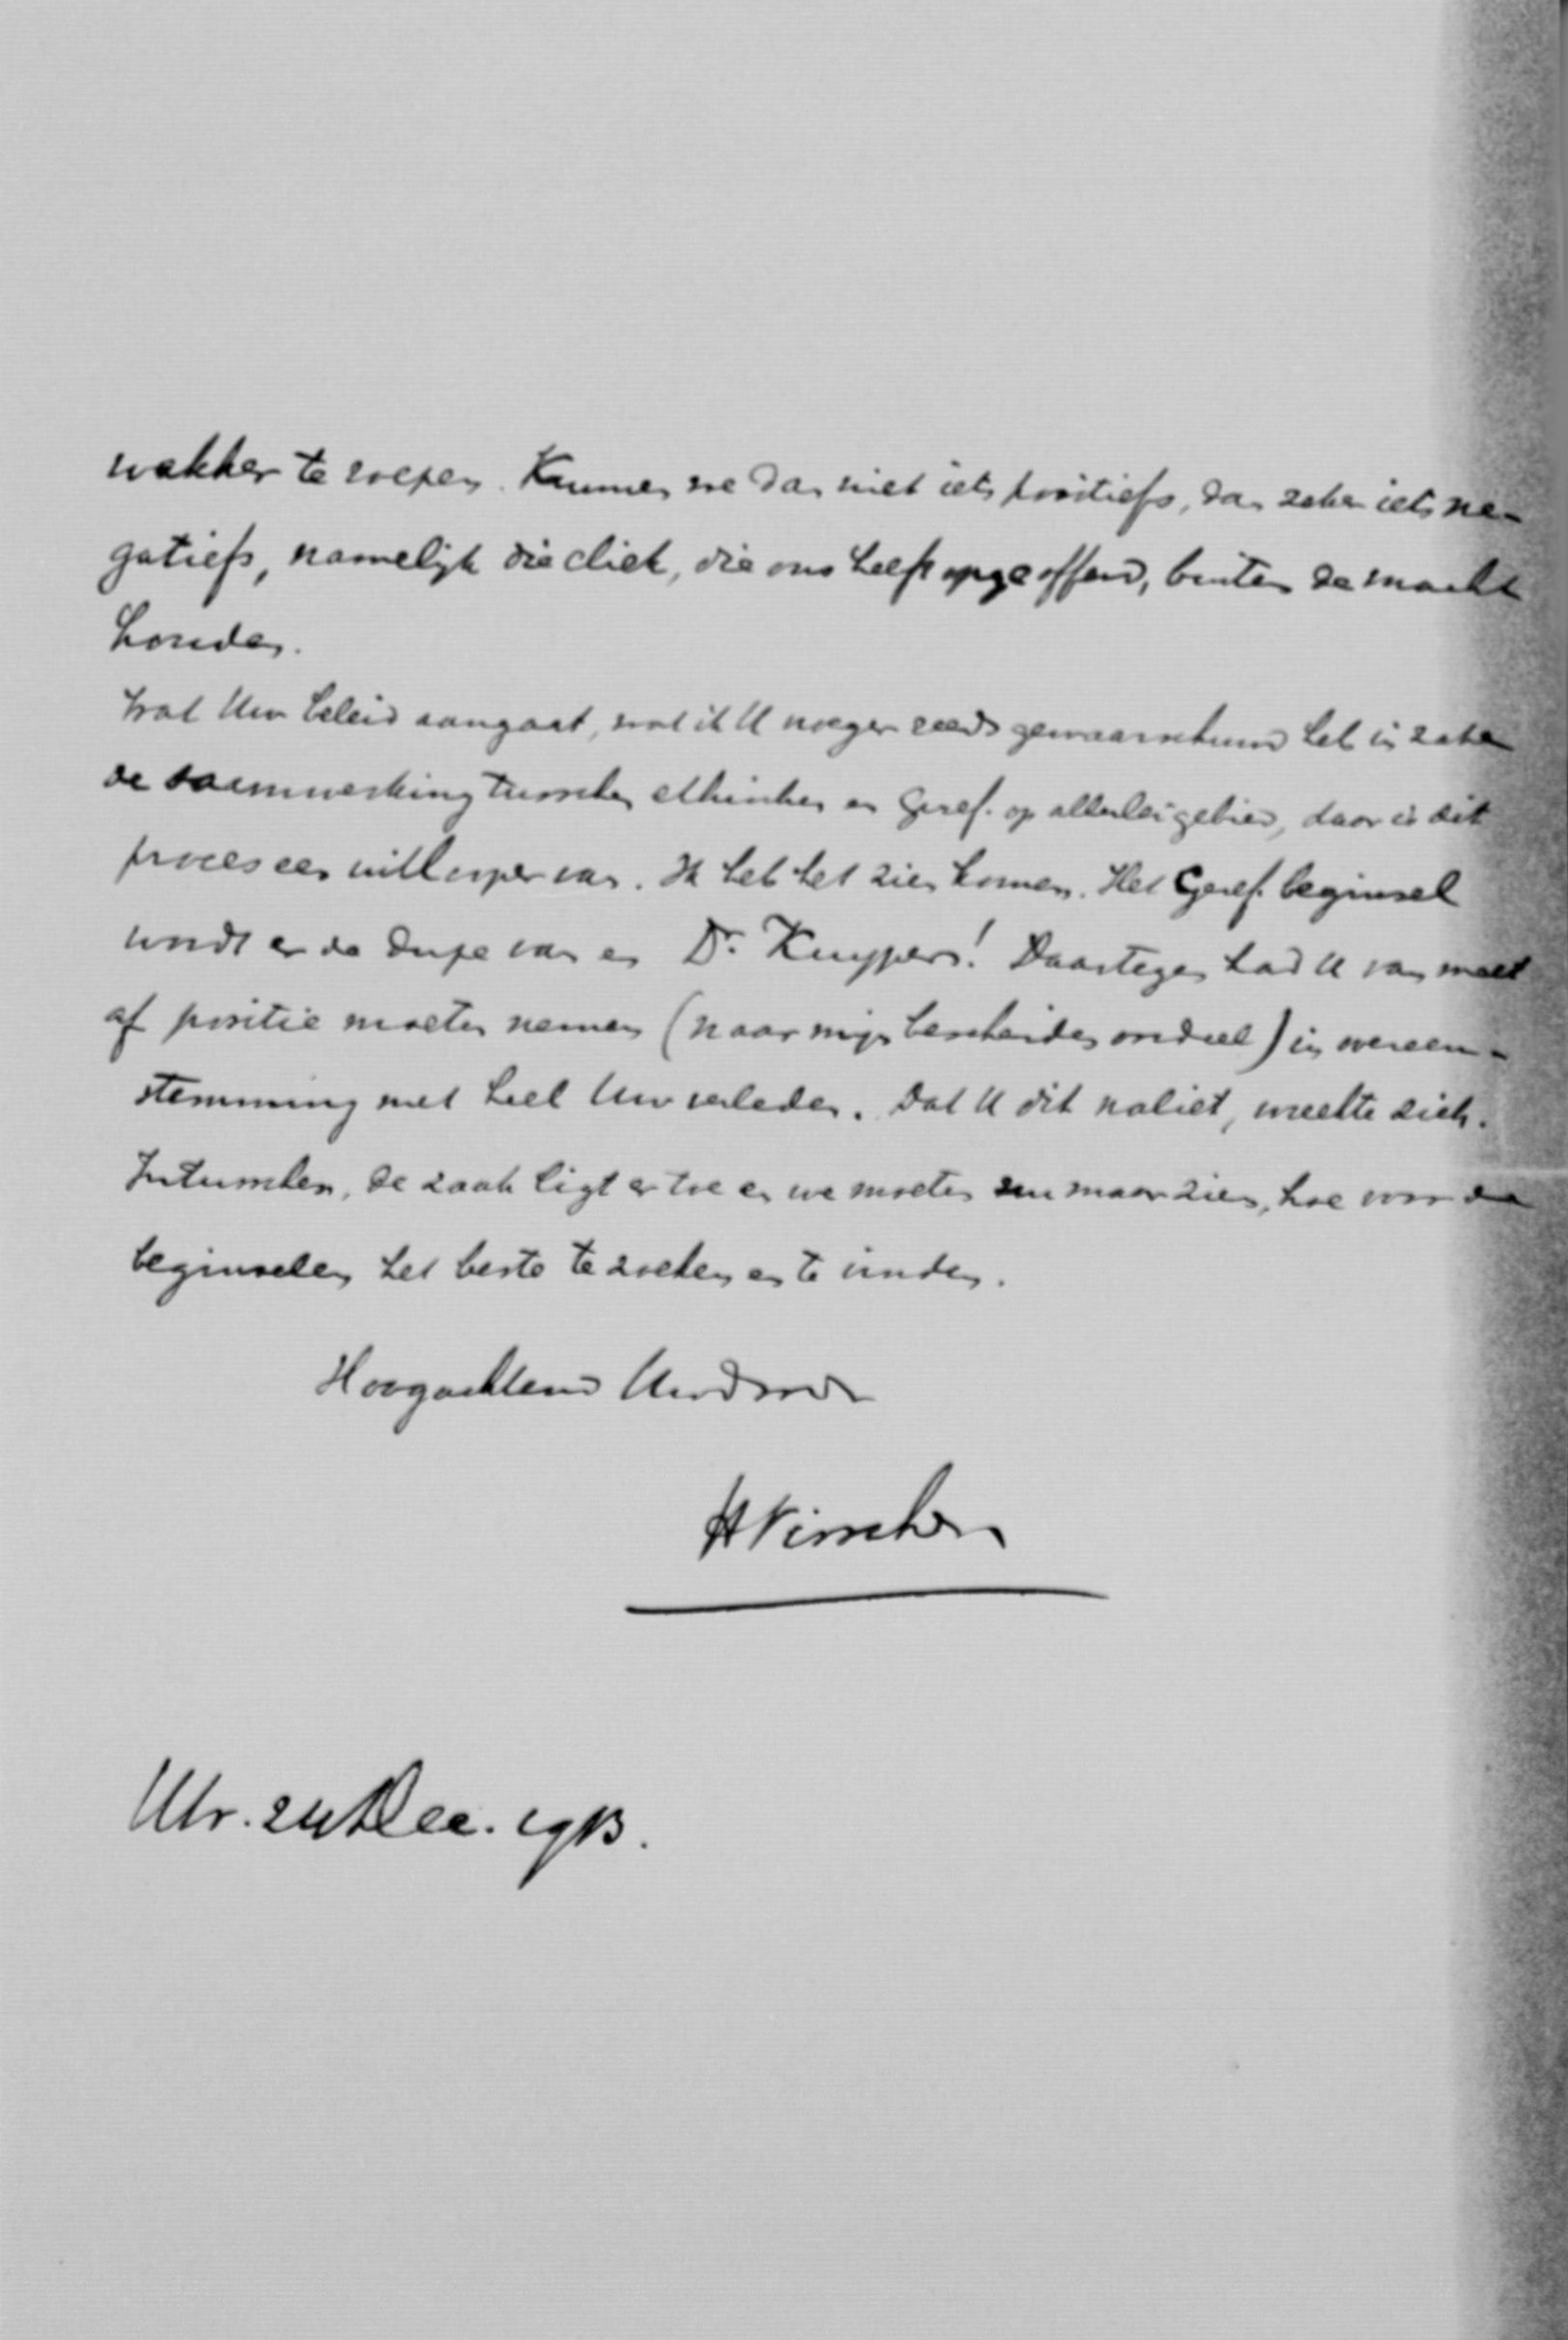 wakker te roepen. Kunnen we dan niet iets positiefs, dan zeker iets ne-
gatiefs, namelijk die cliek, die ons heeft opgeofferd, buiten de macht
houden.
Wat Uw beleid aangaat, wat ik U vroeger reeds gewaarschuwd heb in zake
de saamwerking tusschen ethischen en Geref. op allerlei gebied, daar is dit
proces een uitlooper van. Ik heb het zien komen. Het Geref. beginsel
wordt er de dupe van en Dr. Kuyper! Daartegen had U van meet
af positie moeten nemen (naar mijn bescheiden oordeel) in overeen-
stemming met heel Uw verleden. Dat U dit naliet, wreekte zich.
Intusschen, de zaak ligt er toe en we moeten nu maar zien, hoe voor de
beginselen het beste te zoeken en te vinden.
Hoogachtend Uw dw.
H Visscher
Utr. 24 Dec. 1913.